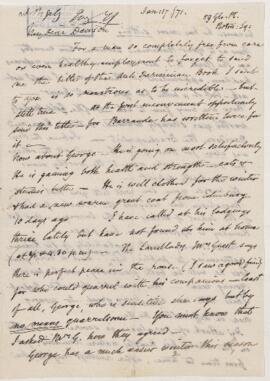 Jan 15th/71.
My dear Dawson
For a man so completely free from care
or even healthy employment to forget to send
me the title of that dale Silurian Book I sent
to you is so monstrous as to be incredible - but
still true. At the first convenient opportunity
send this title - for Barrande has written over for
it -
Now about George - He is going on most satisfactorily
He is gaining both health and strength - eats &
studies better - He is well clothed for the winter
& had a new warm great coat from Edinburg
10 days ago. I have called at his lodgings
thrice lately but have not found him at home
(at 4 or 4.30 pm) - The Landlady Mrs Guest says
there is perfect peace in the house (I saw a good fire)
for who could quarrel with his companions - least
of all, George, who is sensitive she says but by
no means quarrelsome - You must know that
I asked Mrs G. how they agreed -
George has a much easier winter this season